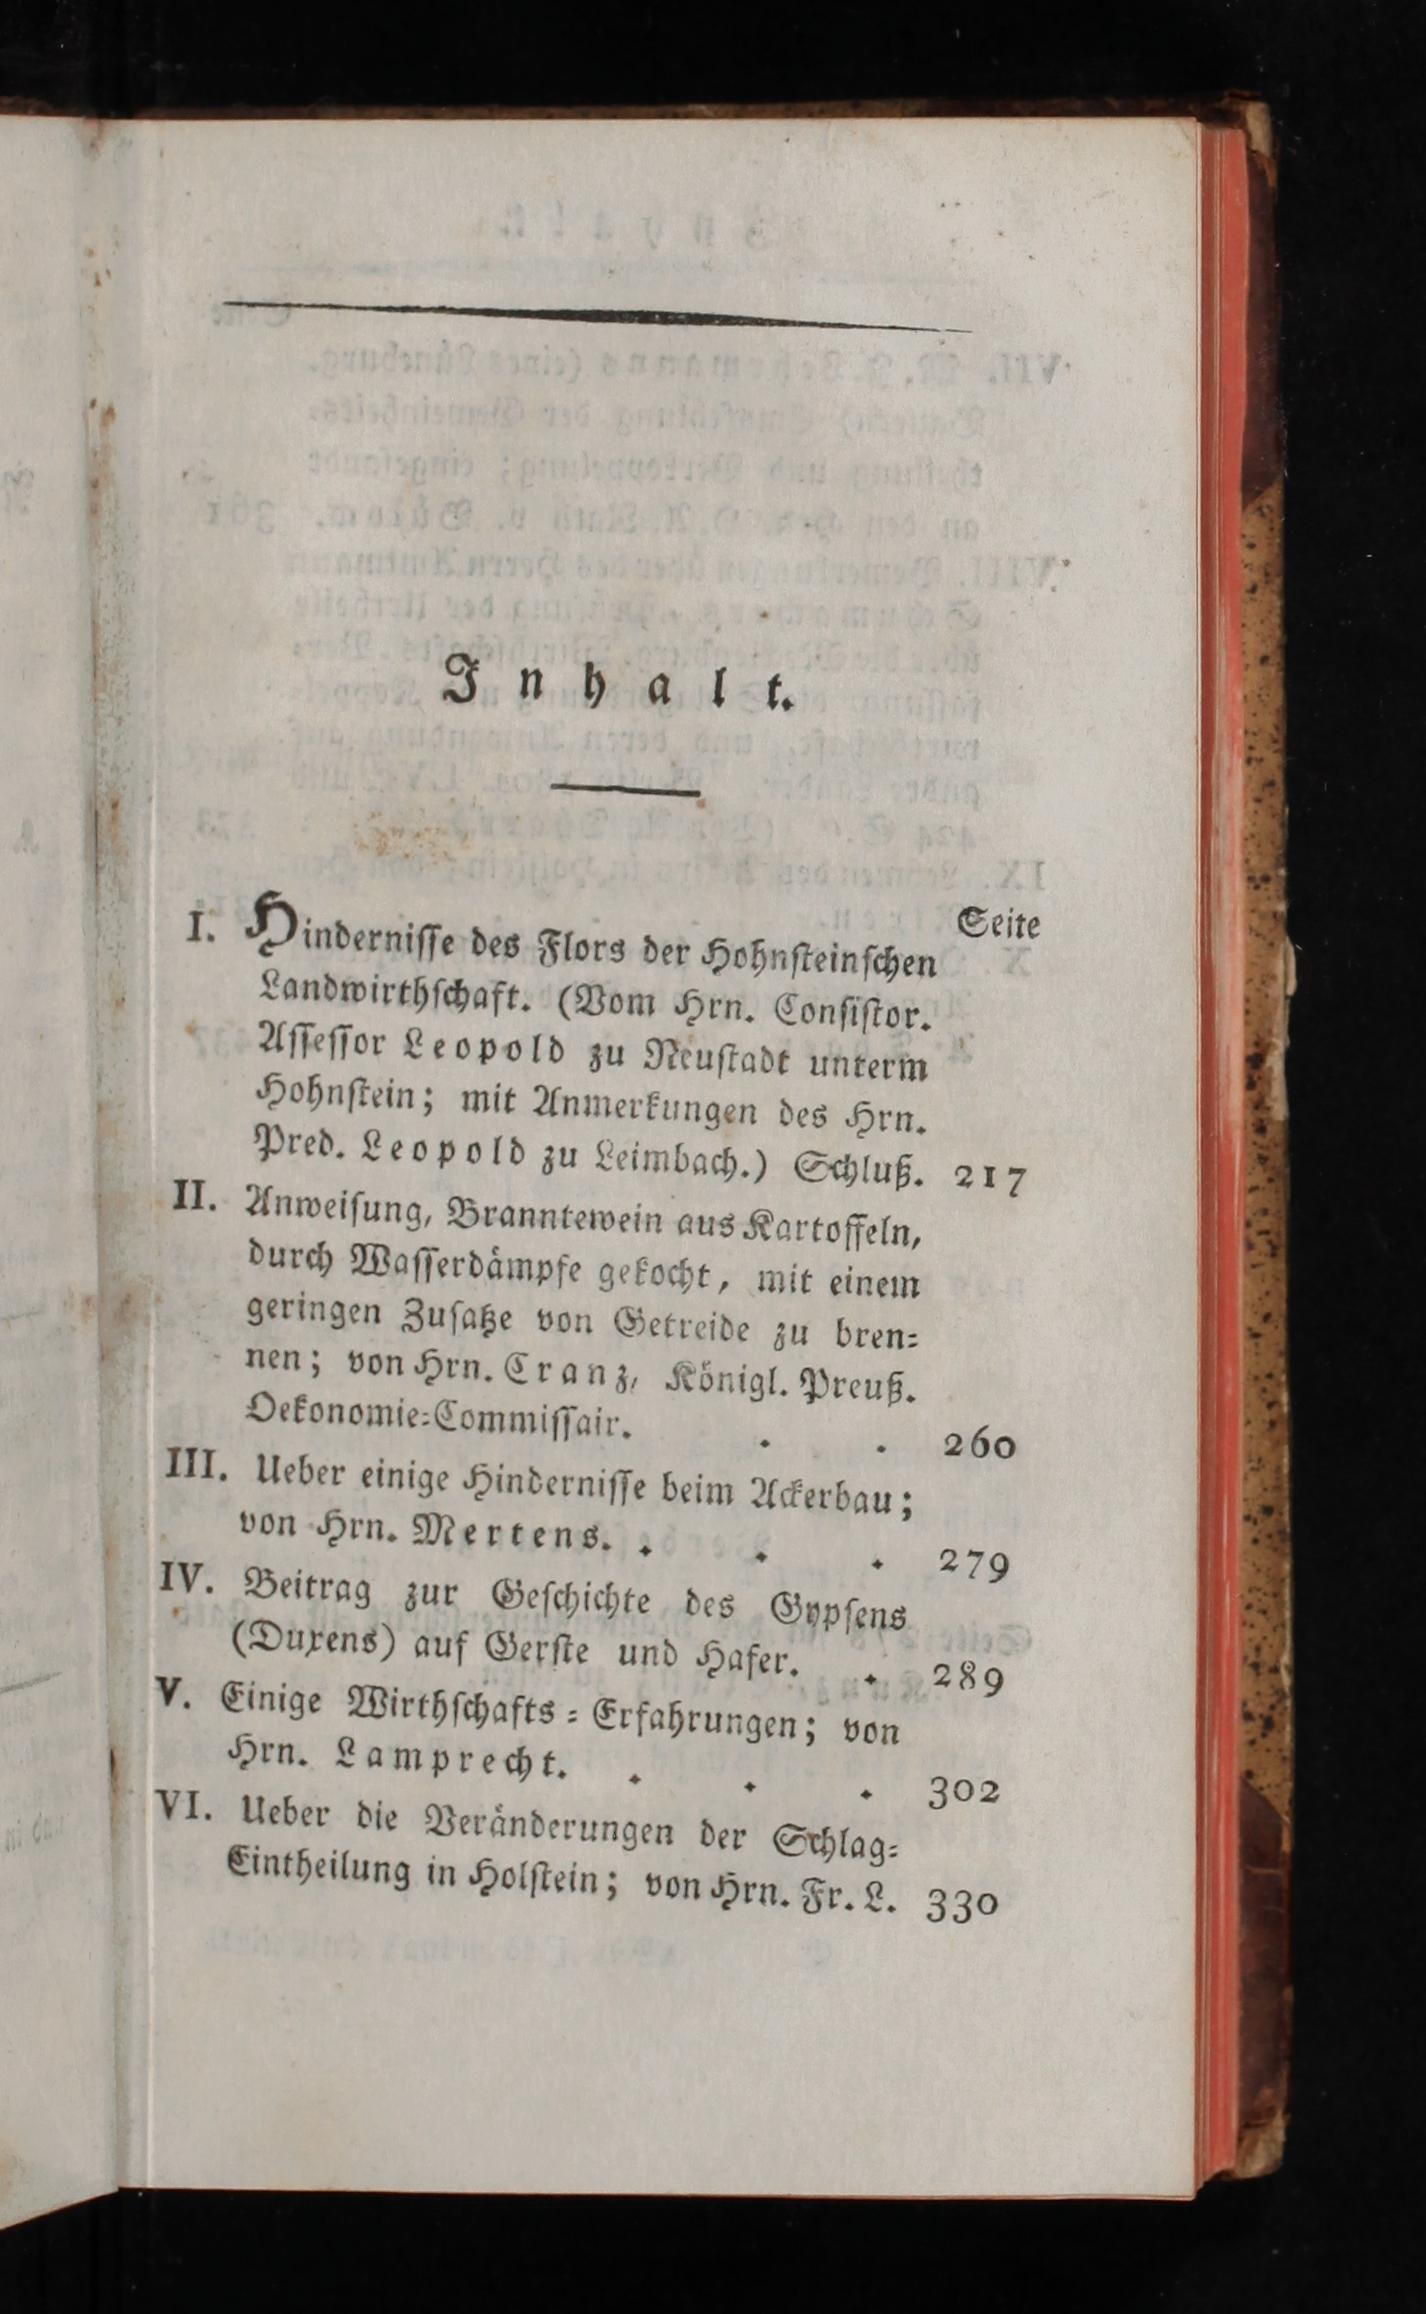 Inhalt.
Seite
I. Hinderniſſe des Flors der Hohnſteinſchen
Landwirthſchaft. (Vom Hrn. Conſiſtor.
Aſſeſſor Leopold zu Neuſtadt unterm
Hohnſtein; mit Anmerkungen des Hrn.
Pred. Leopold zu Leimbach.) Schluß. 217
II. Anweiſung, Branntewein aus Kartoffeln,
durch Waſſerdämpfe gekocht, mit einem
geringen Zuſatze von Getreide zu bren⸗
nen; von Hrn. Cranz, Königl. Preuß.
Oekonomie⸗Commiſſair. . . 260
III. Ueber einige Hinderniſſe beim Ackerbau;
von Hrn. Mertens. . . . 279
IV. Beitrag zur Geſchichte des Gypſens
(Duxens) auf Gerſte und Hafer. . 289
V. Einige Wirthſchafts⸗Erfahrungen; von
Hrn. Lamprecht. . . . 302
VI. Ueber die Veränderungen der Schlag⸗
Eintheilung in Holſtein; von Hrn. Fr. L. 330